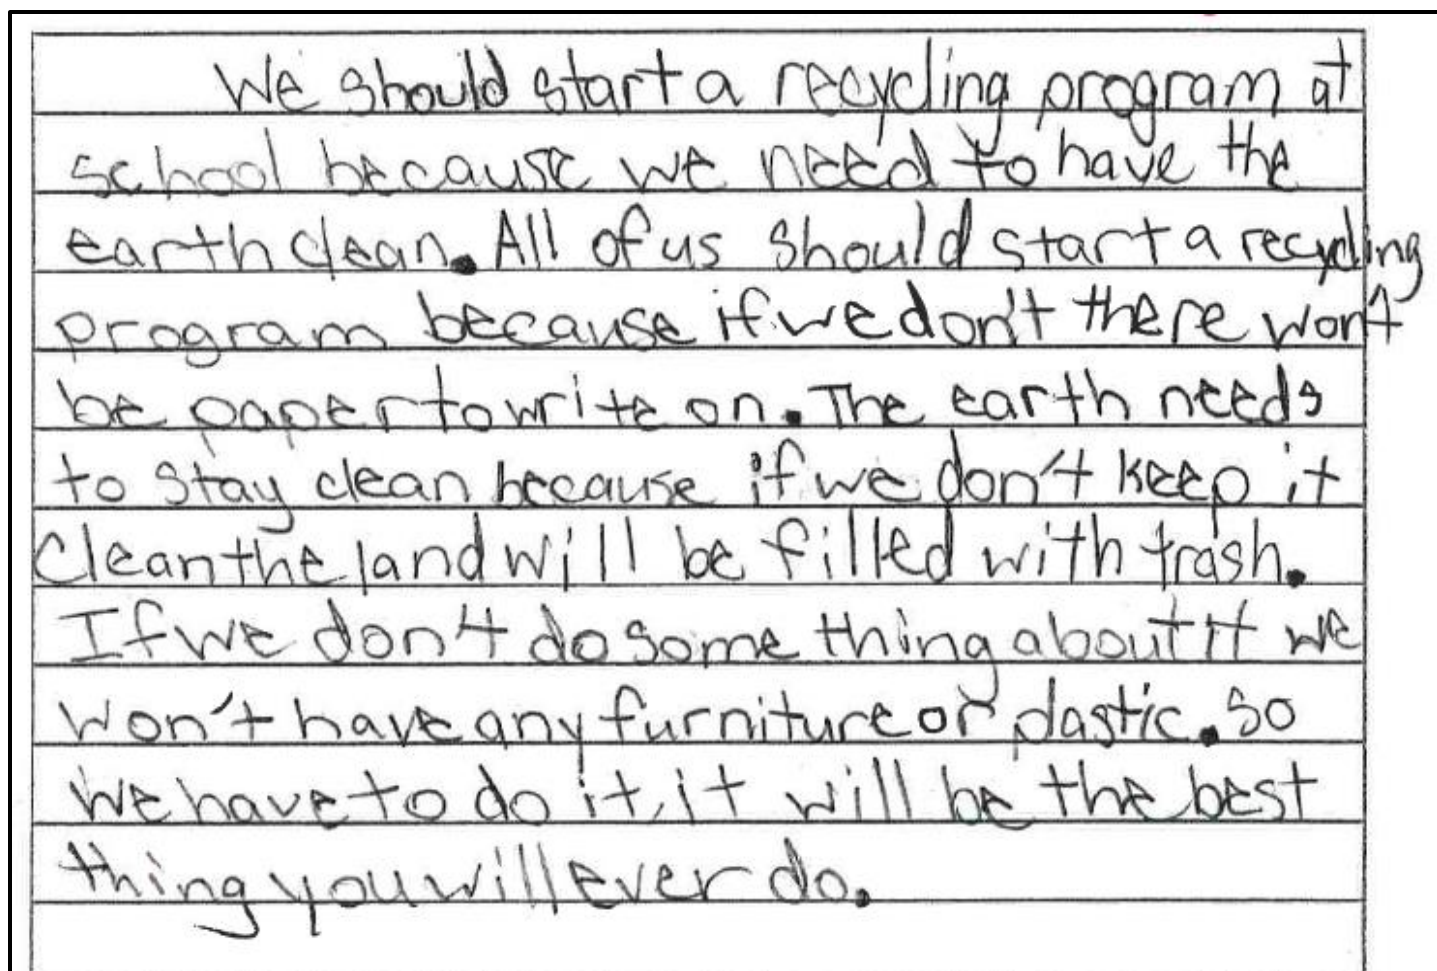 We should start a recycling program at
school because we need to have the
earth clean. All of us should start a recycling
program because if we don't there won't
be paper to write on. The earth needs
to stay clean because if we don't keep it
clean the land will be filled with trash.
If we don't do some thing about it we
won't have any furniture or plastic. So
we have to do it, it will be the best
thing you will ever do.